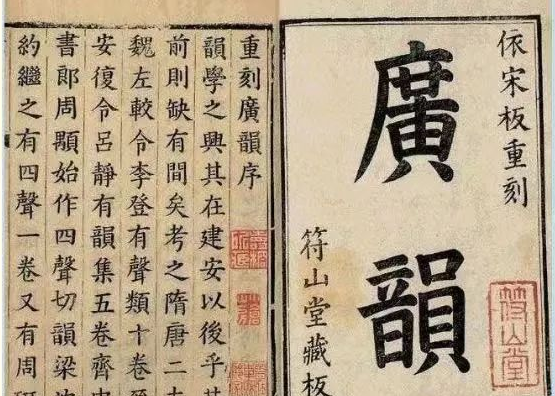 依宋板重刻
廣韻
符山堂藏板
符山堂
重刻廣韻序
韻學之興其在建安以後乎其
前則缺有間矣考之隋唐二
魏左較令李登有聲類十卷
安復令呂靜有韻集五卷齊中
書郎周顒始作四聲切韻梁沈
約繼之有四聲一卷又有周研